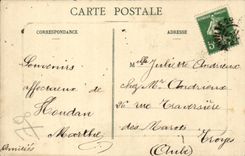 CARTE POSTALE
CORRESPONDANCE
ADRESSE
Souvenirs
affectueux de
Houdan
Marthe
Amitiés
Mlle Juliette Andrieux
chez Mr Andrieux
26 rue Traversière
des Marots
Troyes
(Aube)